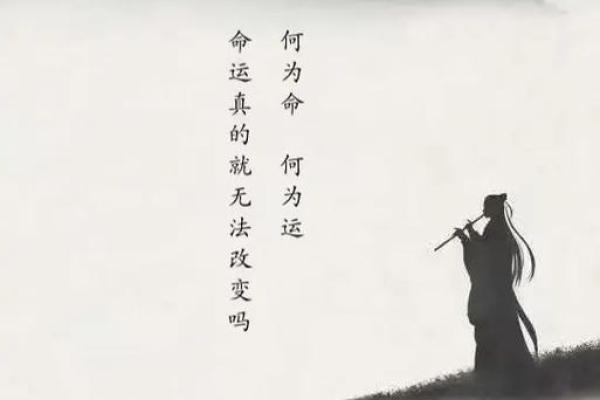 何为命 何为运
命运真的就无法改变吗